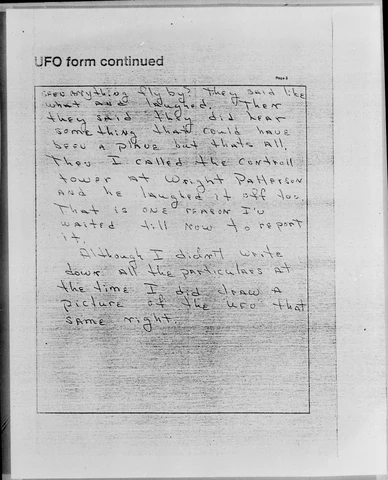 UFO form continued
Page 2
seen anything fly by? They said like
what and laughed. Then
they said they did hear
something that could have
been a plane but thats all.
Then I called the controll
tower at Wright Patterson
and he laughed it off too.
That is one reason I'v
waited till now to report
it.
Although I didn't write
down all the particulars at
the time I did draw a
picture of the UFO that
same night.